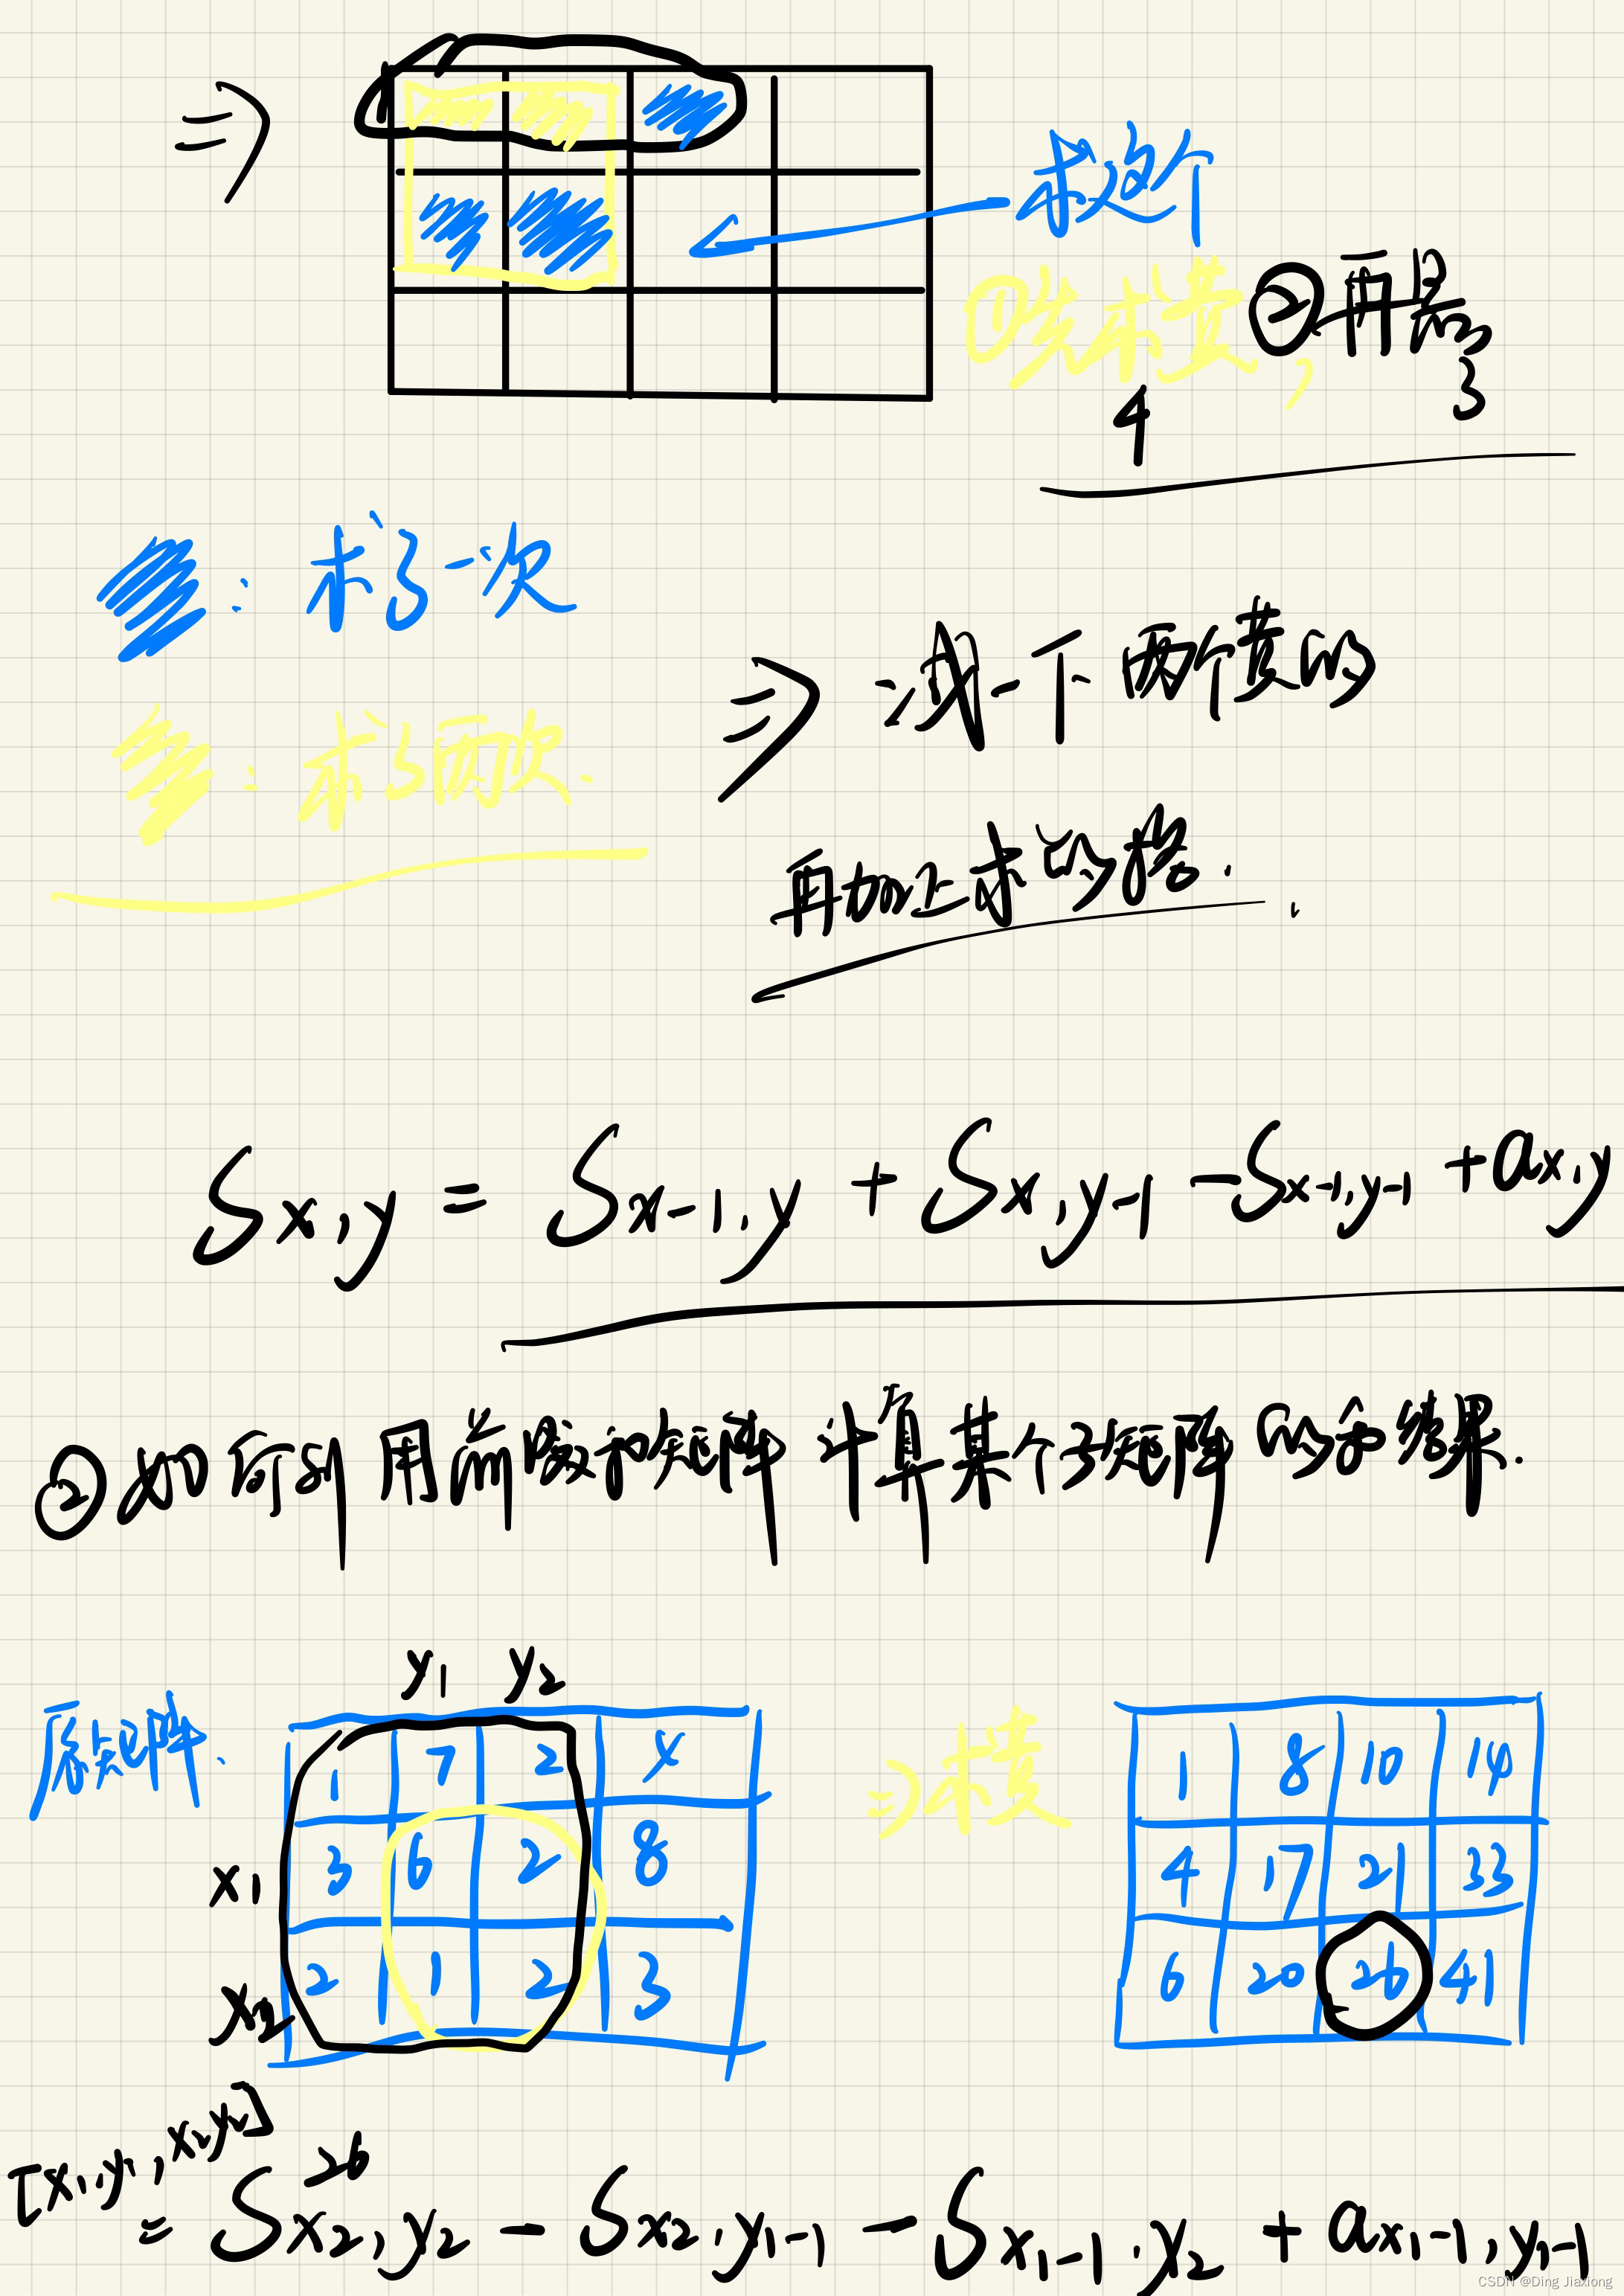 求这个
①先求横, ②再黑
4 3
: 求了一次
: 求了两次.
⇒ 减一下两个黄的
再加上求的格.
Sx,y = Sx-1,y + Sx,y-1 - Sx-1,y-1 + ax,y
② 如何利用前缀和矩阵计算某个子矩阵的和结果.
y1 y2
原矩阵.
1 7 2 4
x1 3 6 2 8
x2 2 1 2 3
⇒求横
1 8 10 14
4 17 21 33
6 20 26 41
[x1,y1,x2y2]
26
= Sx2,y2 - Sx2,y1-1 - Sx1-1,y2 + ax1-1,y1-1
CSDN @Ding Jiaxiong